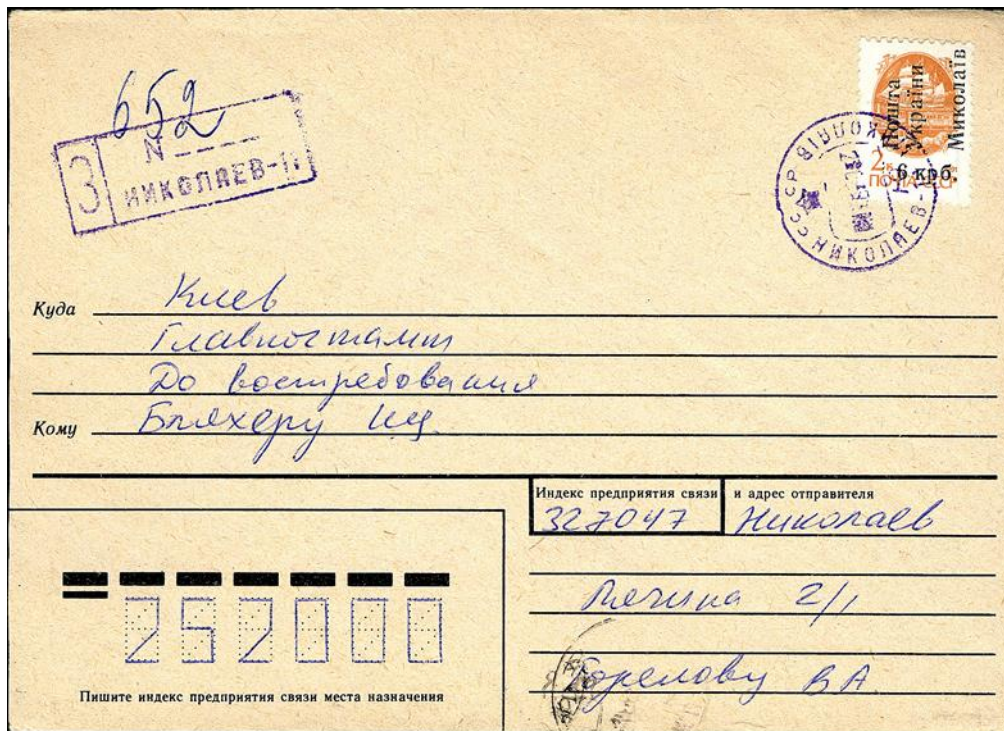 652
З
N
НИКОЛАЕВ-1
Пошта
України
Миколаїв
6 крб.
ПОЧТА СССР
НИКОЛАЕВ
Куда Киев
Главпочтамт
До востребования
Кому Бляхеру ИЦ
Индекс предприятия связи и адрес отправителя
327047 Николаев
2/1
252000
Горелову ВА
Пишите индекс предприятия связи места назначения